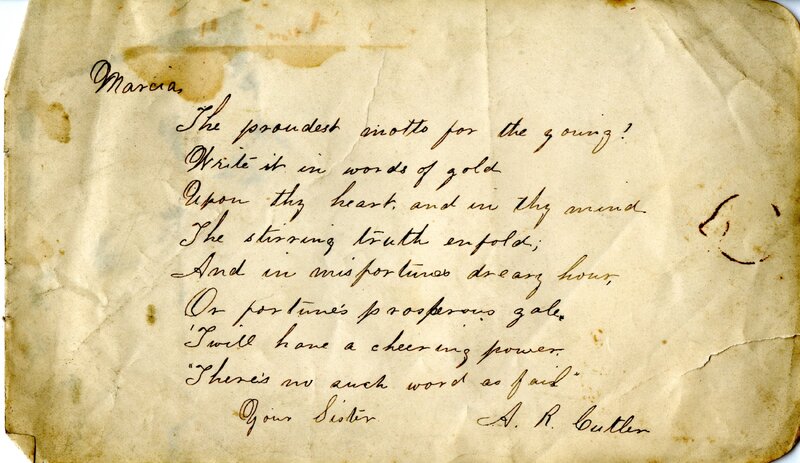 Marcia,
The proudest motto for the young!
Write it in words of gold
Upon thy heart, and in thy mind
The stirring truth enfold;
And in misfortunes dreary hour,
Or fortune's prosperous gale.
'Twill have a cheering power.
"There's no such word as fail"
Your Sister A. R. Cutler